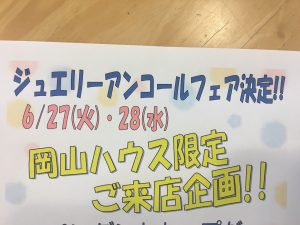 ジュエリーアンコールフェア決定!!
6/27(火)・28(水)
岡山ハウス限定
ご来店企画!!